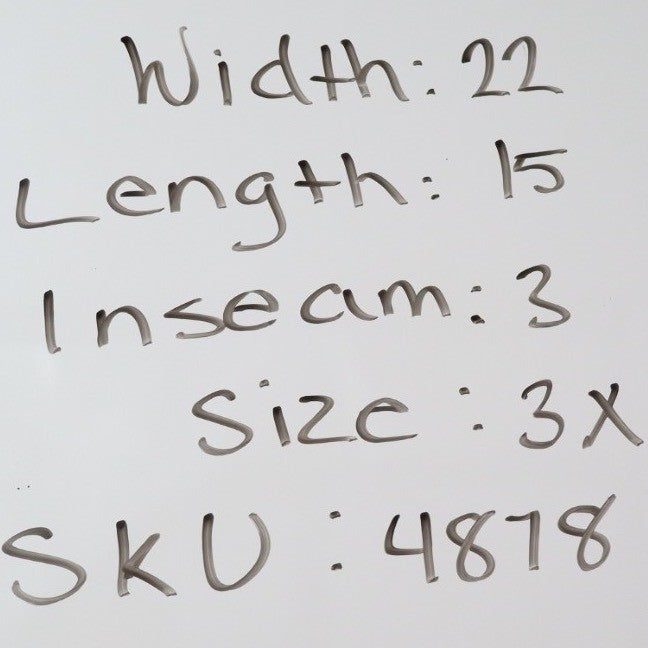 Width: 22
Length: 15
Inseam: 3
Size: 3X
SKU: 4878